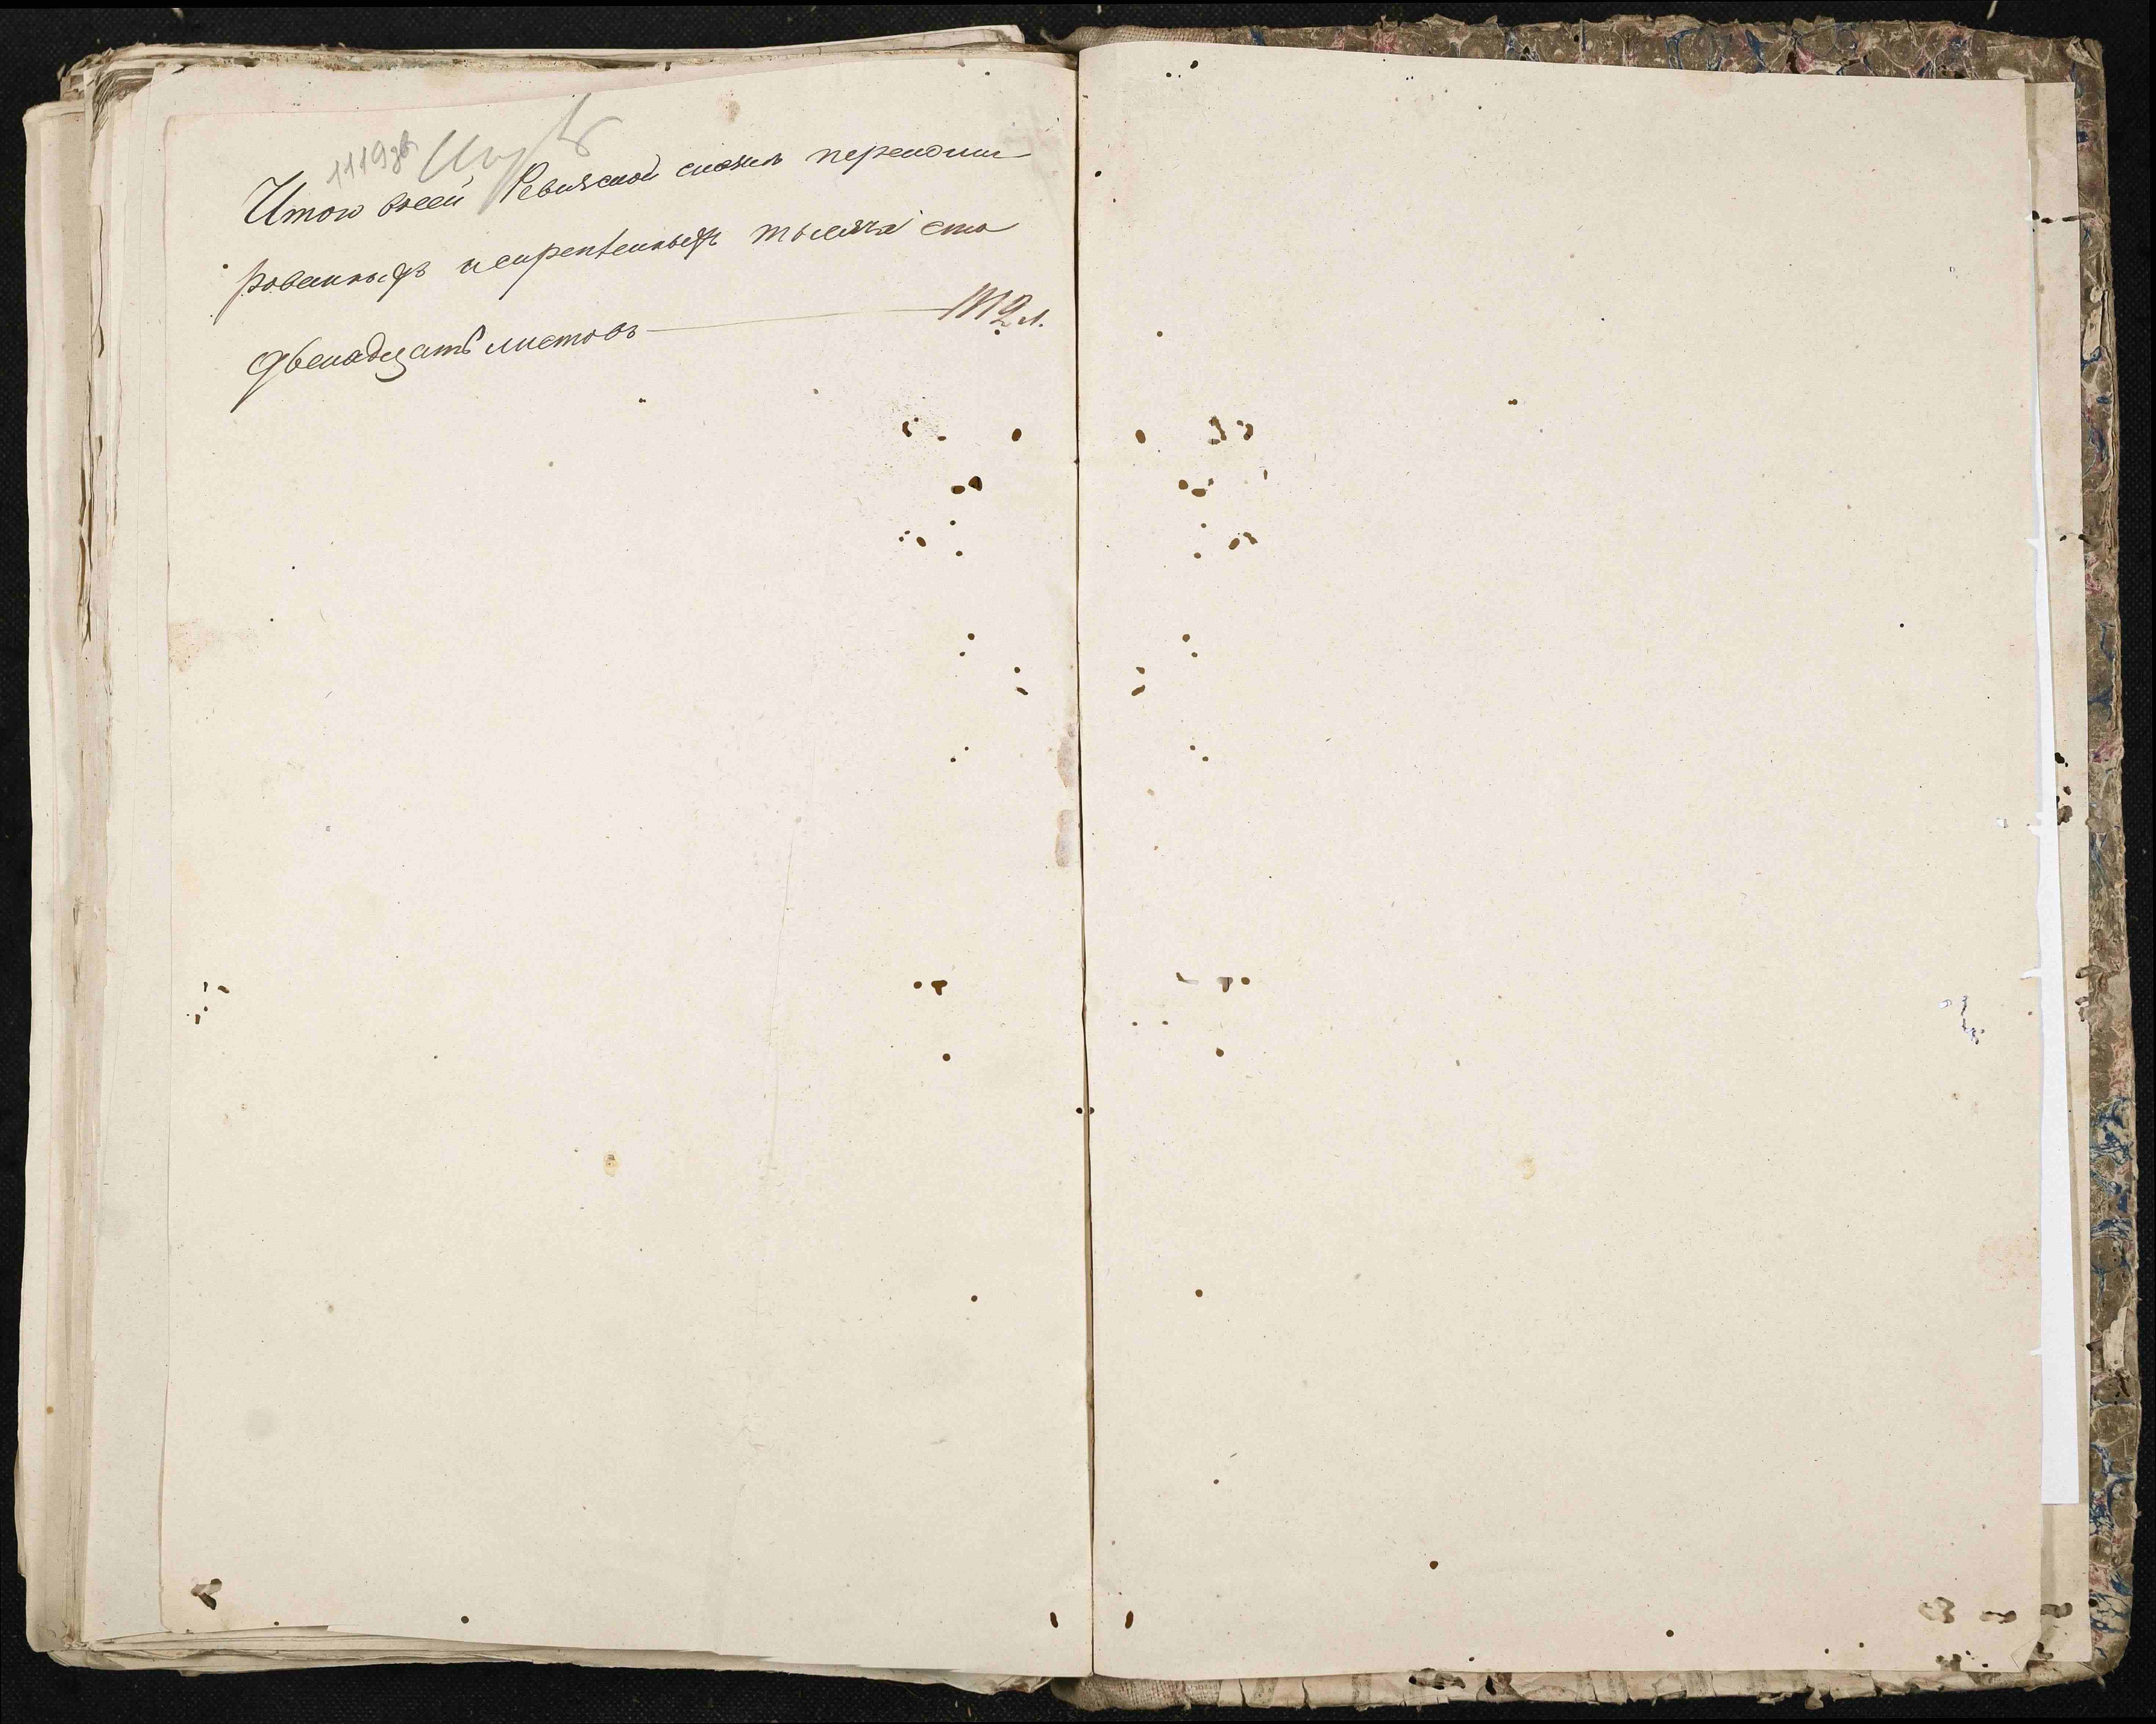 1119 зв
Итого всей Ревизской сказки перенуме
рованныхъ и скрепленныхъ тысяча сто
двенадцать листовъ — 1112 л.